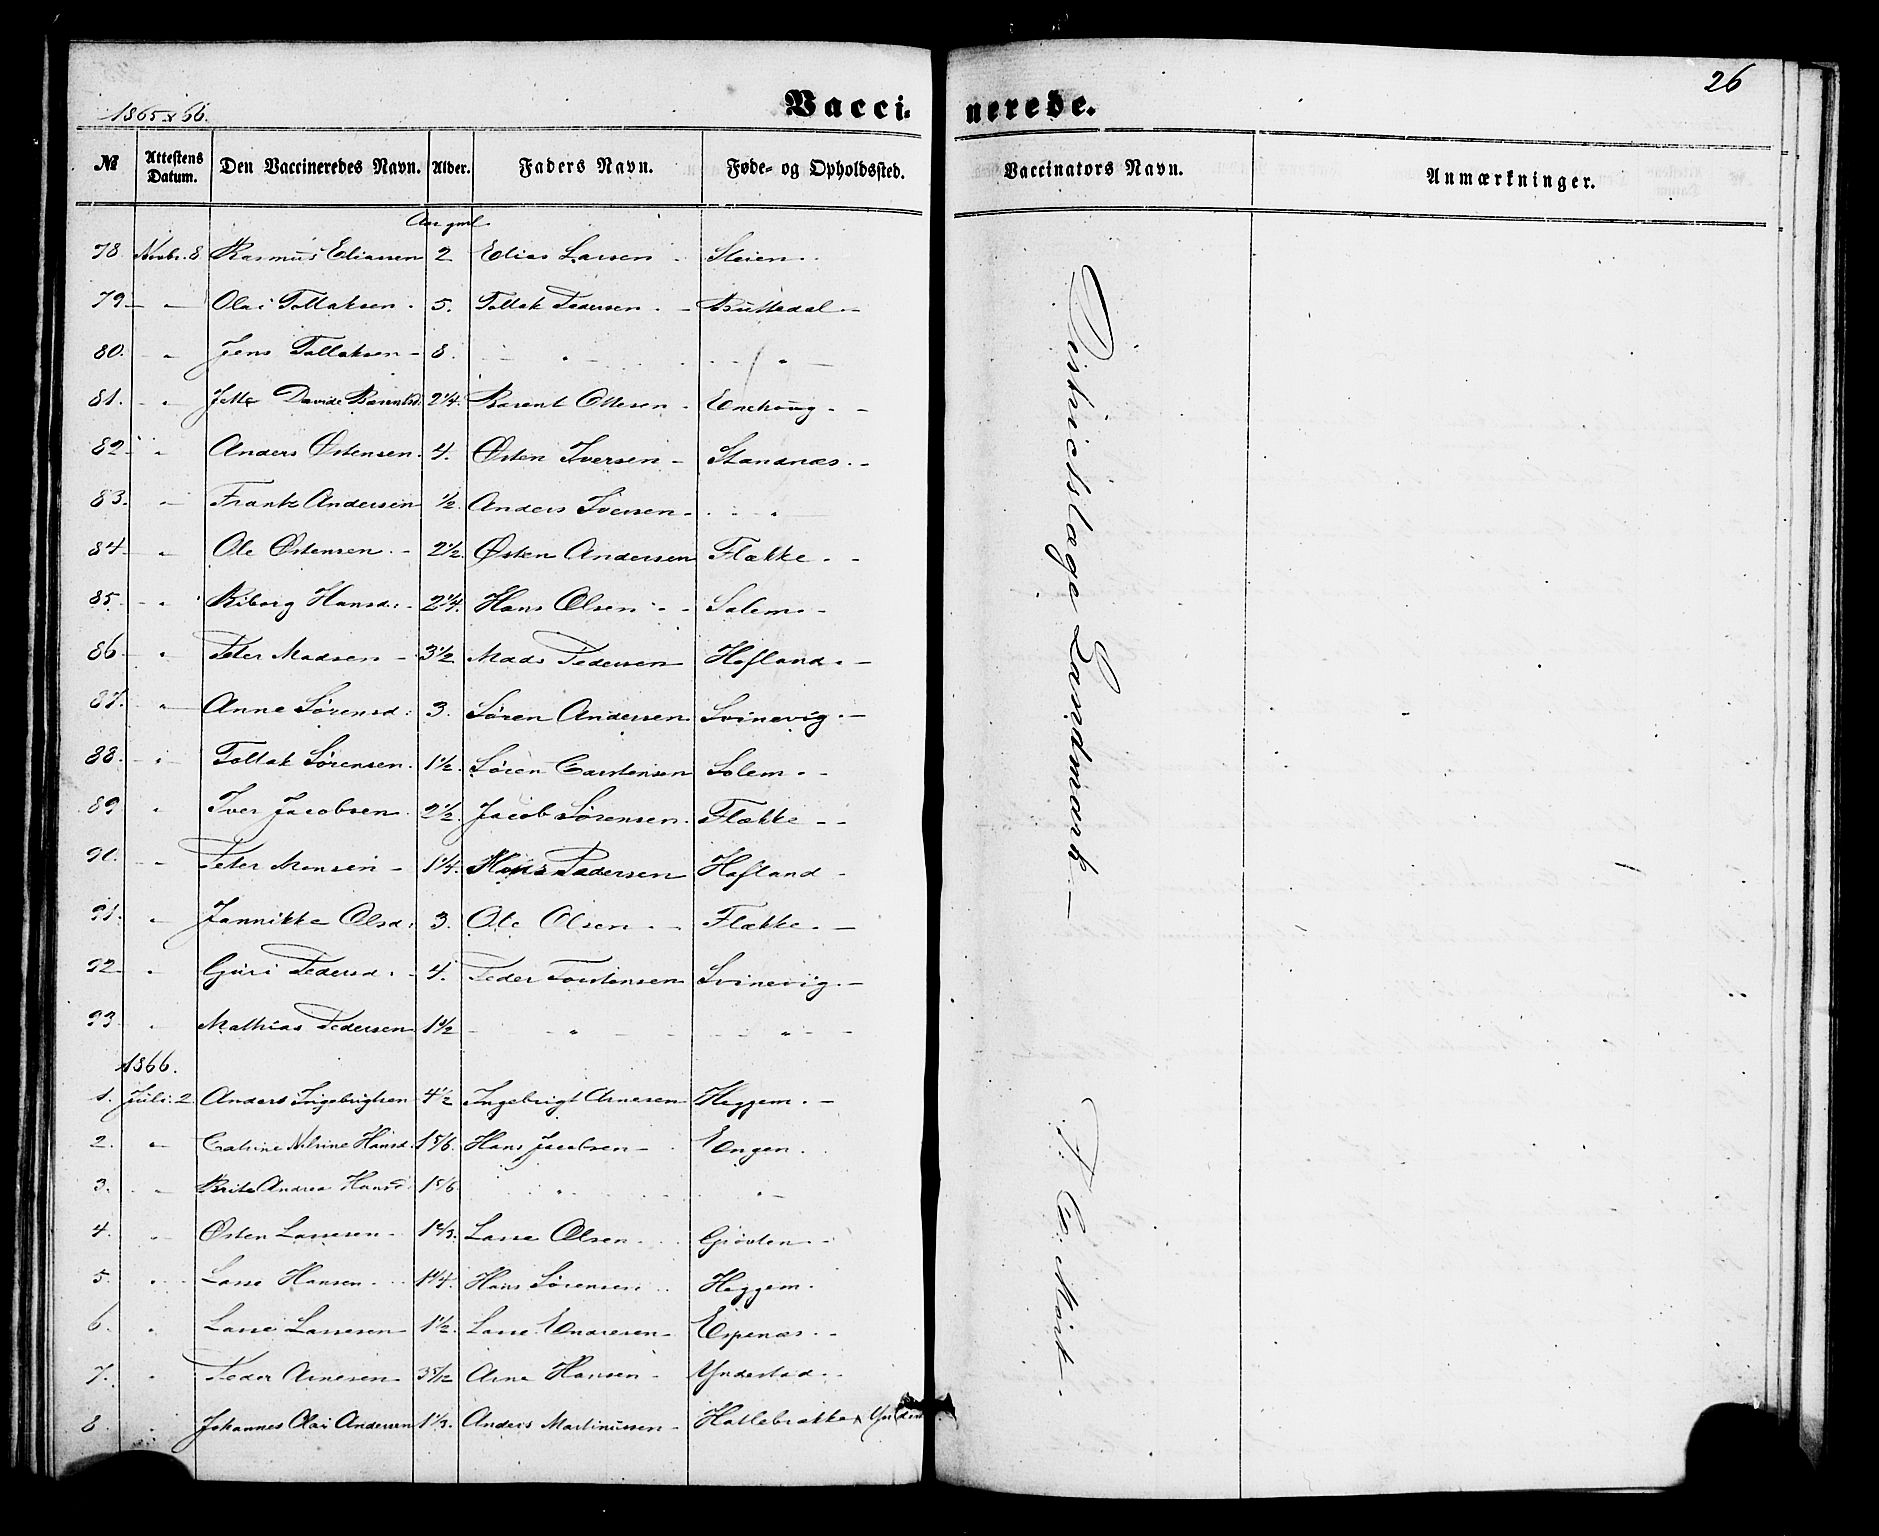 26
1865 & 66.
Vaccinerede.
№ Attestens Datum. Den Vaccineredes Navn. Alder. Faders Navn. Føde- og Opholdssted. Vaccinators Navn. Anmærkninger.
Aar gml.
78 Novbr. 8 Rasmus Eliassen 2 Elias Larsen - Steien -
79 - " - Olai Tollaksen - 5. Tollak Pedersen - Buttedal -
80. - " Jens Tollaksen - 8. - " - - " -
81. - " Davide Barentsd. 2 1/4. Barent Ottesen - Enehoug -
82 - " Anders Østensen. 4. Østen Iversen - Standnæs -
83. " Frantz Andersen 1/2 Anders Iversen - - " -
84 - " Ole Østensen - 2 1/2 Østen Andersen Flække -
85. - " Riborg Hansd. - 2 1/4. Hans Olsen - Solem -
86 - " Peter Madsen - 3 1/2 Mads Pedersen Hofland -
87. " Anne Sørensd. 3. Søren Andersen Svinevig -
88. - " - Tollak Sørensen. 1 1/2. Søren Carstensen Solem -
89 " Iver Jacobsen 2 1/2. Jacob Sørensen. Flække -
90. - " Peter Monsen - 1 1/4. Mons Pedersen Hofland -
91. " Jannikke Olsd. 3. Ole Olsen - Flække -
92 - " Guri Pedersd. - 4. Peder Torstensen Svinevig -
93 " Mathias Pedersen 1 1/2 - " - - " -
1866.
1. Juli 2 Anders Ingebrigtsen 4 1/2 Ingebrigt Arnesen Heggem -
2. " Catrine Nilsine Hansd. 1 5/6. Hans Jacobsen - Engen.
3. " Brite Andrea Hansd. 1 5/6 " " -
4. " Østen Lassesen - 1 2/3. Lasse Olsen - Grøvlen -
5. " Lasse Hansen - 1 1/4. Hans Sørensen Heggem.
6. " Lasse Lassesen 1 1/2. Lasse Endresen - Espenæs -
7. " Peder Arnesen 3 5/12 Arne Hansen - Yndestad -
8 " Johannes Olai Andersen 1 1/3. Anders Martinussen - Hatlebrække
Districtslæge Landmark -